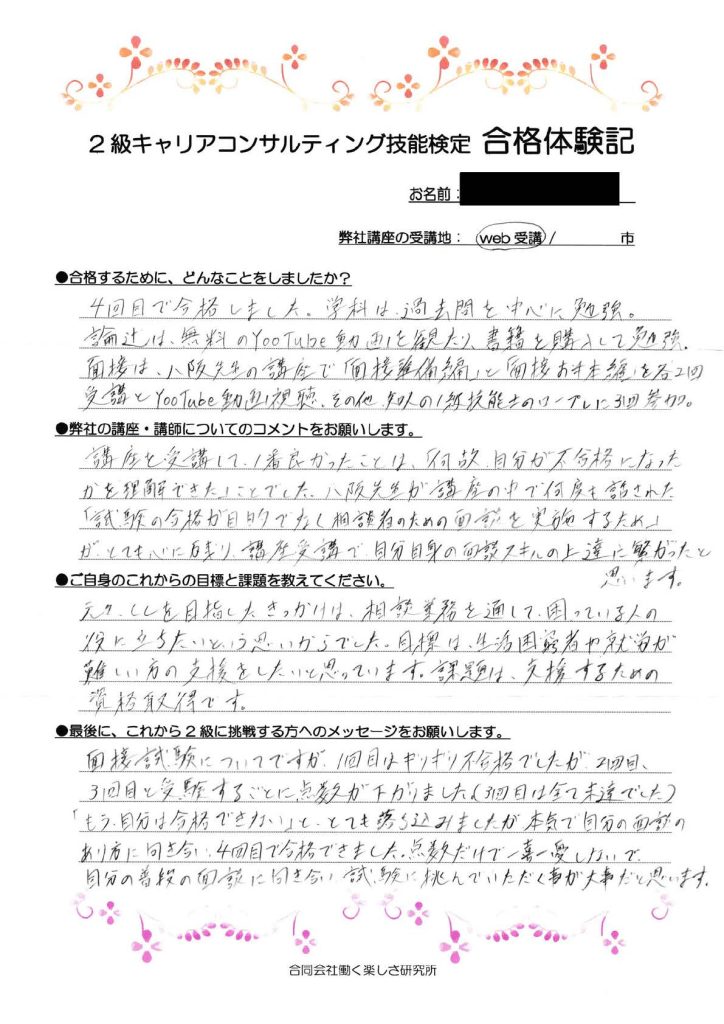 2級キャリアコンサルティング技能検定 合格体験記
お名前：
弊社講座の受講地： web受講 / 市
●合格するために、どんなことをしましたか？
4回目で合格しました。学科は、過去問を中心に勉強。
論述は、無料のYooTube動画を観たり、書籍を購入して勉強。
面接は、八阪先生の講座で「面接準備編」と「面接お手本編」を各2回
受講とYooTube動画視聴、その他、知人の1級技能士のロープレに3回参加。
●弊社の講座・講師についてのコメントをお願いします。
講座を受講して、1番良かったことは、「何故、自分が不合格になった
かを理解できた」ことでした。八阪先生が講座の中で何度も話された
「試験の合格が目的でなく相談者のための面談を実施するため」
が、とても心に刺さり、講座受講で、自分自身の面談スキルの上達に繋がったと
思います。
●ご自身のこれからの目標と課題を教えてください。
元々、CCを目指したきっかけは、相談業務を通して、困っている人の
役に立ちたいという思いからでした。目標は、生活困窮者や就労が
難しい方の支援をしたいと思っています。課題は、支援するための
資格取得です。
●最後に、これから2級に挑戦する方へのメッセージをお願いします。
面接試験についてですが、1回目はギリギリ不合格でしたが、2回目、
3回目と受験するごとに点数が下がりました（3回目は全て未達でした）
「もう、自分は合格できない」と、とても落ち込みましたが本気で自分の面談の
あり方に向き合い、4回目で合格できました。点数だけで一喜一憂しないで、
自分の普段の面談に向き合い試験に挑んでいただく事が大事だと思います。
合同会社働く楽しさ研究所